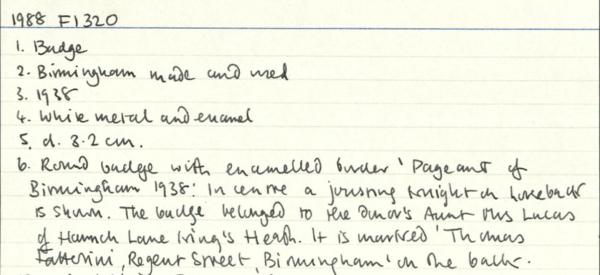 1988 F1320
1. Badge
2. Birmingham made and used
3. 1938
4. White metal and enamel
5. d. 3.2 cm.
6. Round badge with enamelled border 'Pageant of
Birmingham 1938'. In centre a jousting knight on horseback
is shown. The badge belonged to the donor's Aunt Mrs Lucas
of Haunch Lane King's Heath. It is marked 'Thomas
Fattorini, Regent Street, Birmingham' on the back.